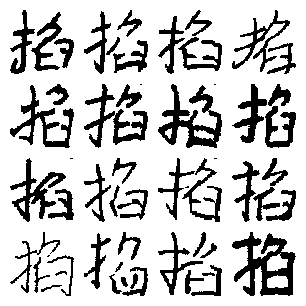 掐掐掐掐
掐掐掐掐
掐掐掐掐
掐掐掐掐